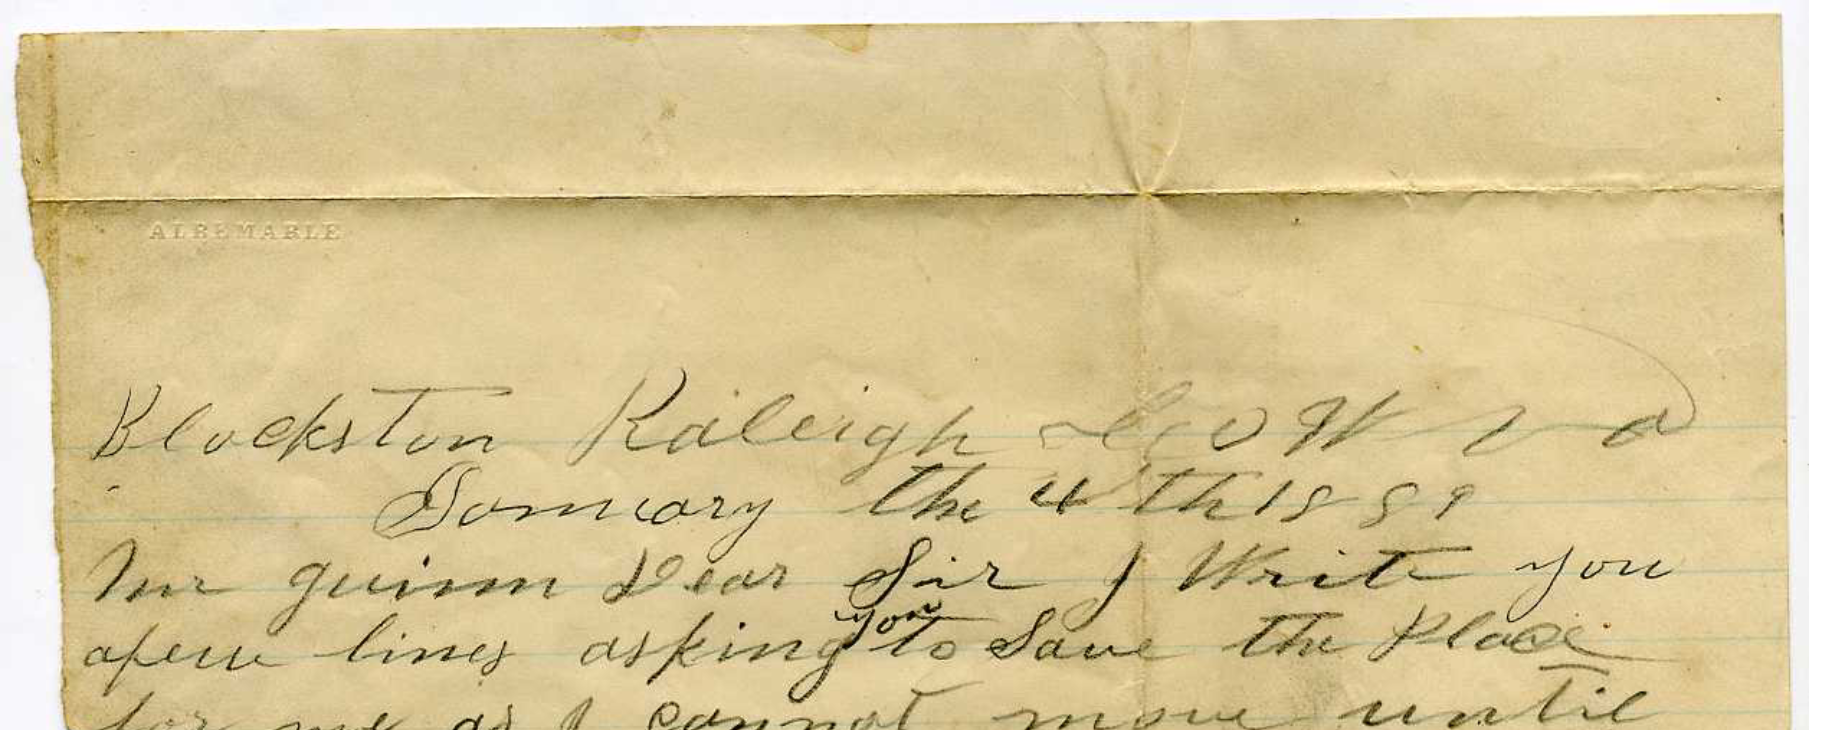 ALBEMARLE
Blockston Raleigh Co W Va
January the 4 th 1889
Mr guinn Dear Sir I Write you
afew lines asking you to Save the Place
for me as I cannot move until